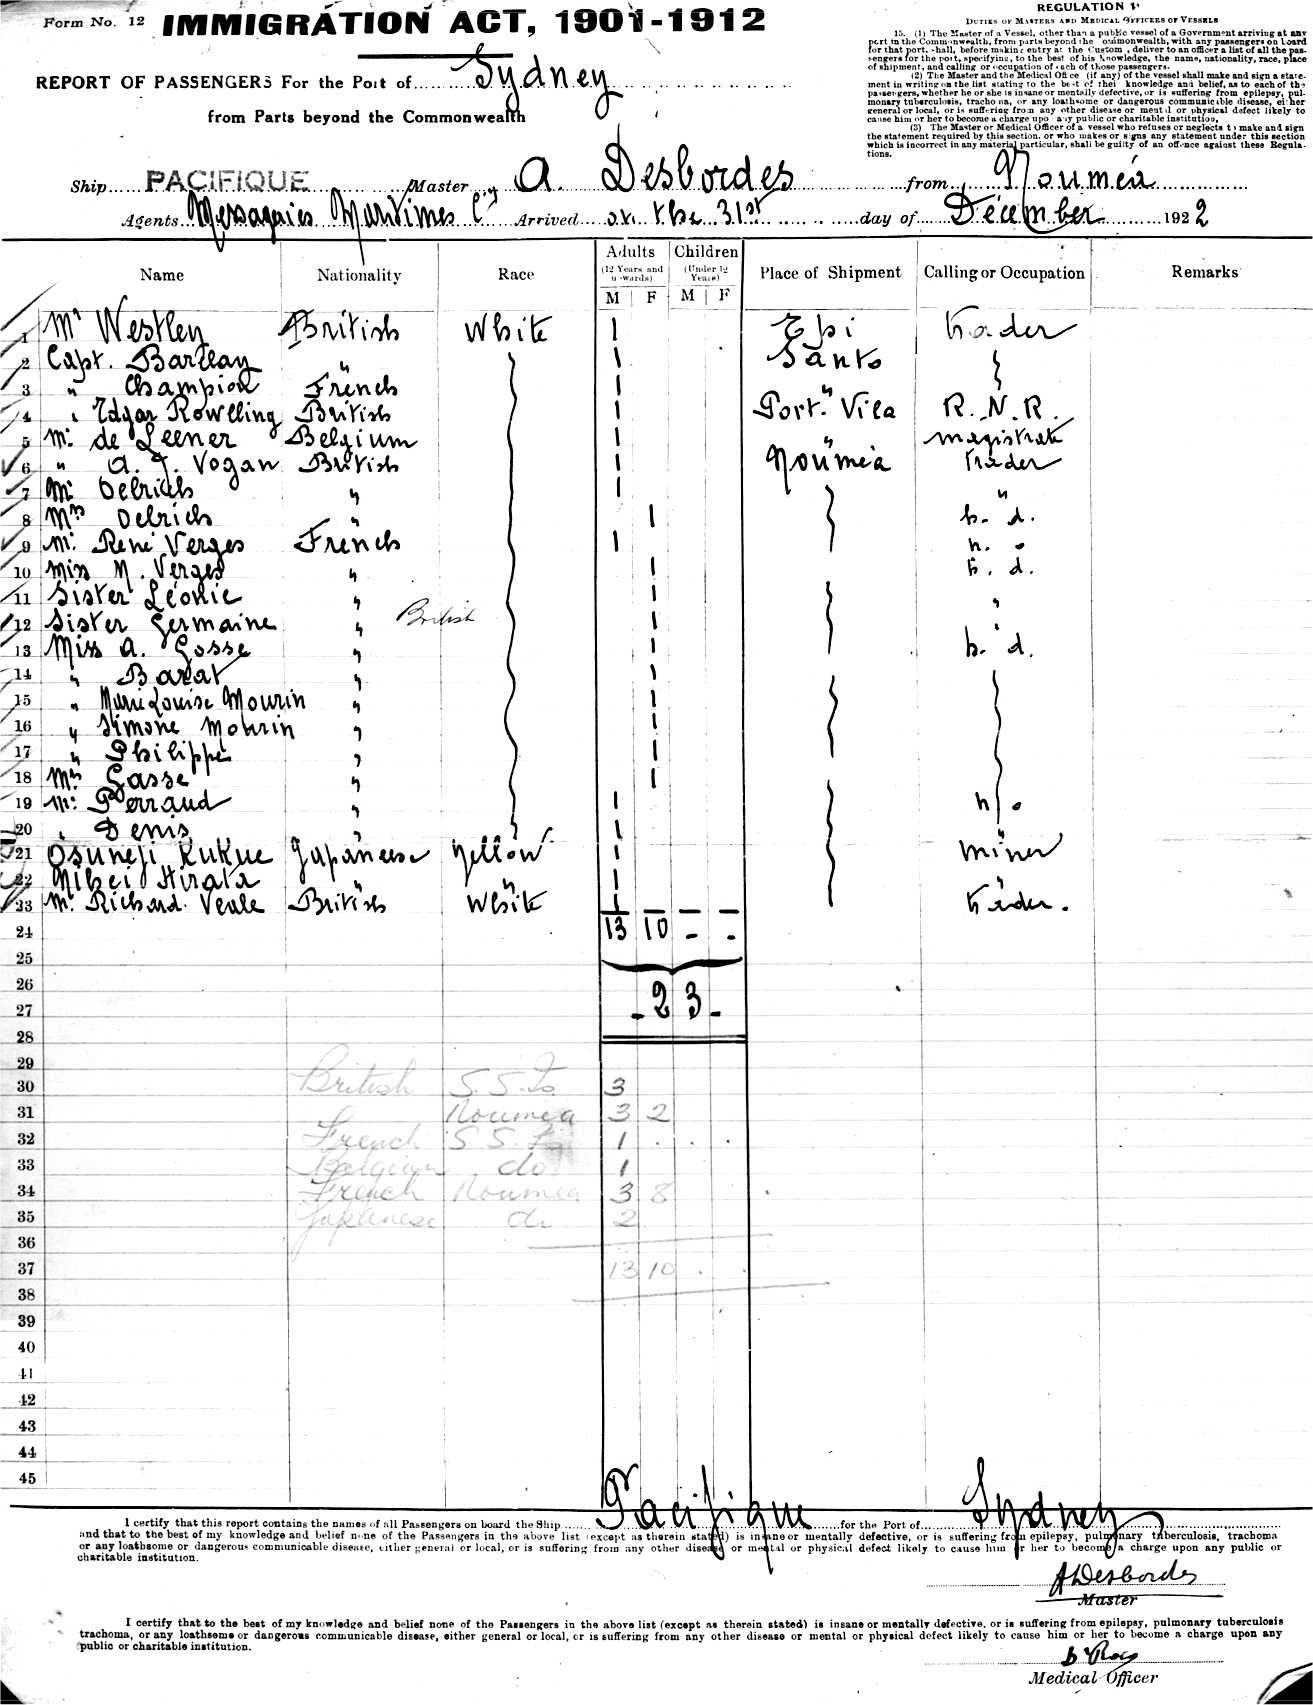 Form No. 12 IMMIGRATION ACT, 1901-1912
REPORT OF PASSENGERS For the Port of Sydney
from Parts beyond the Commonwealth
REGULATION
DUTIES OF MASTERS AND MEDICAL OFFICERS OF VESSELS
15. (1) The Master of a Vessel, other than a public vessel of a Government arriving at any
port in the Commonwealth, from parts beyond the Commonwealth, with any passengers on board
for that port, shall, before making entry at the Customs, deliver to an officer a list of all the pas-
sengers for the port, specifying, to the best of his knowledge, the name, nationality, race, place
of shipment, and calling or occupation of each of those passengers.
(2) The Master and the Medical Officer (if any) of the vessel shall make and sign a state-
ment in writing on the list stating to the best of their knowledge and belief, as to each of the
passengers, whether he or she is insane or mentally defective, or is suffering from epilepsy, pul-
monary tuberculosis, trachoma, or any loathsome or dangerous communicable disease, either
general or local, or is suffering from any other disease or mental or physical defect likely to
cause him or her to become a charge upon any public or charitable institution,
(3) The Master or Medical Officer of a vessel who refuses or neglects to make and sign
the statement required by this section, or who makes or signs any statement under this section
which is incorrect in any material particular, shall be guilty of an offence against these Regula-
tions.
Ship PACIFIQUE Master A. Desbordes from Nouméa
Agents Messageries Maritimes Cie Arrived on the 31st day of December 1922
Name Nationality Race Adults Children Place of Shipment Calling or Occupation Remarks
(12 Years and upwards) (Under 12 Years)
M F M F
1 Mr Westley British White 1 Epi trader
2 Capt. Barteau " 1 Santo
3 " Champion French 1 "
4 " Edgar Rowlling British 1 Port Vila R.N.R.
5 Mr. de Leener Belgium 1 " magistrate
6 " A. J. Vogan British 1 Nouméa trader
7 Mr Oelrichs " 1 "
8 Mrs Oelrichs " 1 h. d.
9 Mr. René Verges French 1 n. o
10 Miss M. Verges " 1 h. d.
11 Sister Léonie " 1 "
12 Sister Germaine " British 1 "
13 Miss A. Gosse " 1 h. d.
14 " Barat " 1
15 " Marie Louise Mourin " 1
16 " Simone Mourin " 1
17 " Philippe " 1
18 Mrs Gasse " 1
19 Mr. Perraud " 1 n. o
20 " Denis " 1 "
21 Osuneji Kukue Japanese Yellow 1 miner
22 Nibei Hirata " " 1 "
23 Mr Richard Veale British White 1 trader.
24 13 10 - -
25
26
27 - 23 -
28
29
30 British S.S. Is 3
31 Noumea 3 2
32 French S.S. Is 1 . . .
33 Belgian do 1
34 French Noumea 3 8
35 Japanese do 2
36
37 13 10 . .
38
39
40
41
42
43
44
45
I certify that this report contains the names of all Passengers on board the Ship Pacifique for the Port of Sydney
and that to the best of my knowledge and belief none of the Passengers in the above list (except as therein stated) is insane or mentally defective, or is suffering from epilepsy, pulmonary tuberculosis, trachoma
or any loathsome or dangerous communicable disease, either general or local, or is suffering from any other disease or mental or physical defect likely to cause him or her to become a charge upon any public or
charitable institution.
A Desbordes
Master
I certify that to the best of my knowledge and belief none of the Passengers in the above list (except as therein stated) is insane or mentally defective, or is suffering from epilepsy, pulmonary tuberculosis
trachoma, or any loathsome or dangerous communicable disease, either general or local, or is suffering from any other disease or mental or physical defect likely to cause him or her to become a charge upon any
public or charitable institution.
Medical Officer